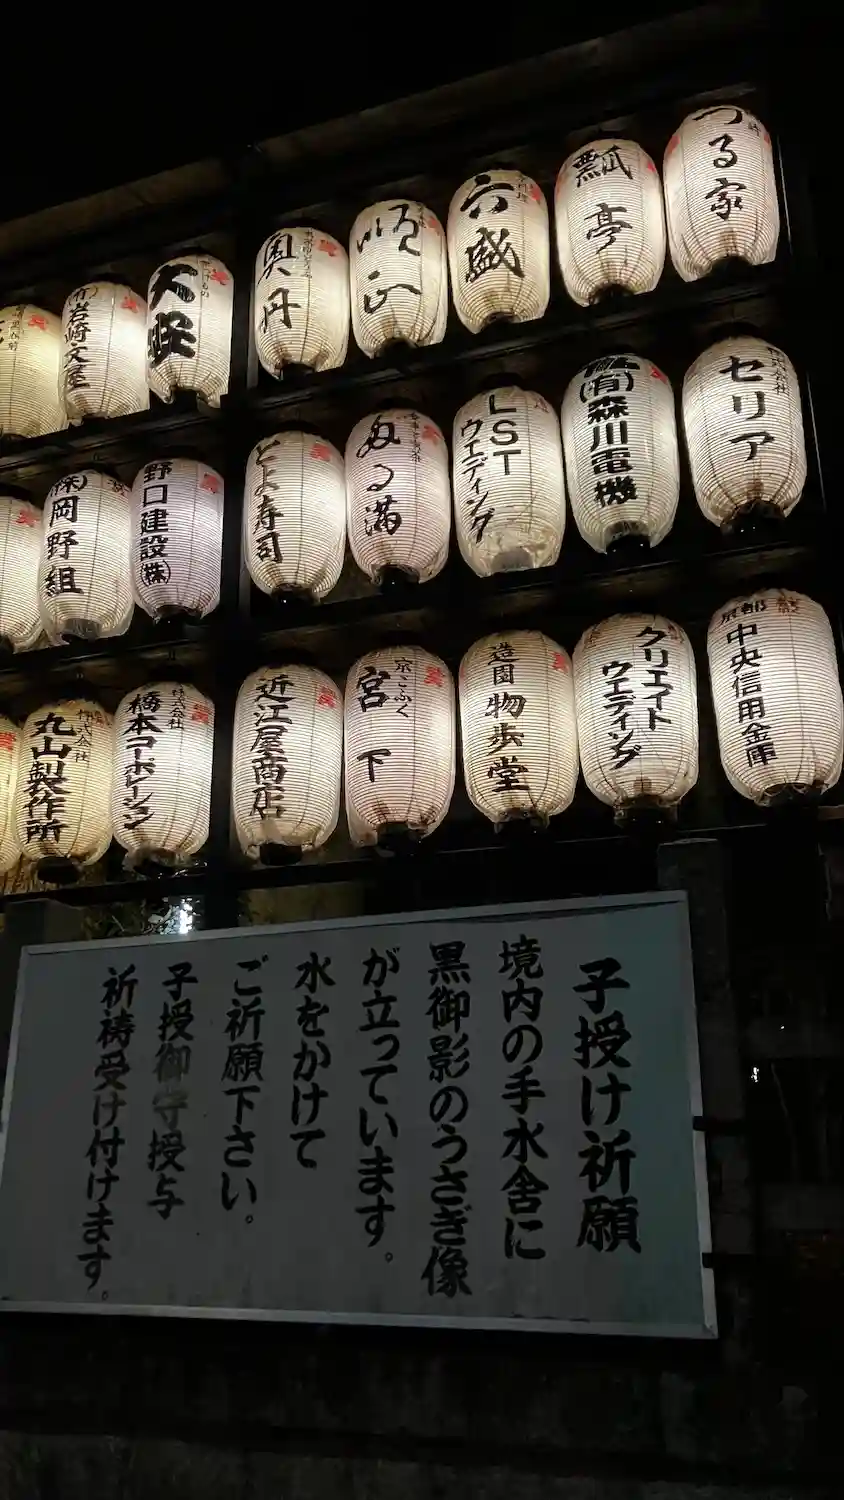 つる家
瓢亭
六盛
奥丹
大
(有)岩崎文屋
株式会社
セリア
(有)森川電機
LST
ウエディング
ぬる満
とよ寿司
野口建設(株)
(株)岡野組
京都
中央信用金庫
クリエイト
ウエディング
造園
物歩堂
京とふく
宮下
近江屋商店
株式会社
橋本コーポーション
株式会社
丸山製作所
子授け祈願
境内の手水舎に
黒御影のうさぎ像
が立っています。
水をかけて
ご祈願下さい。
子授御守授与
祈祷受け付けます。